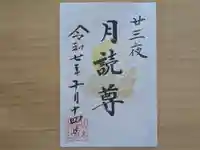 廿三夜
月読尊
令和七年十月十四日